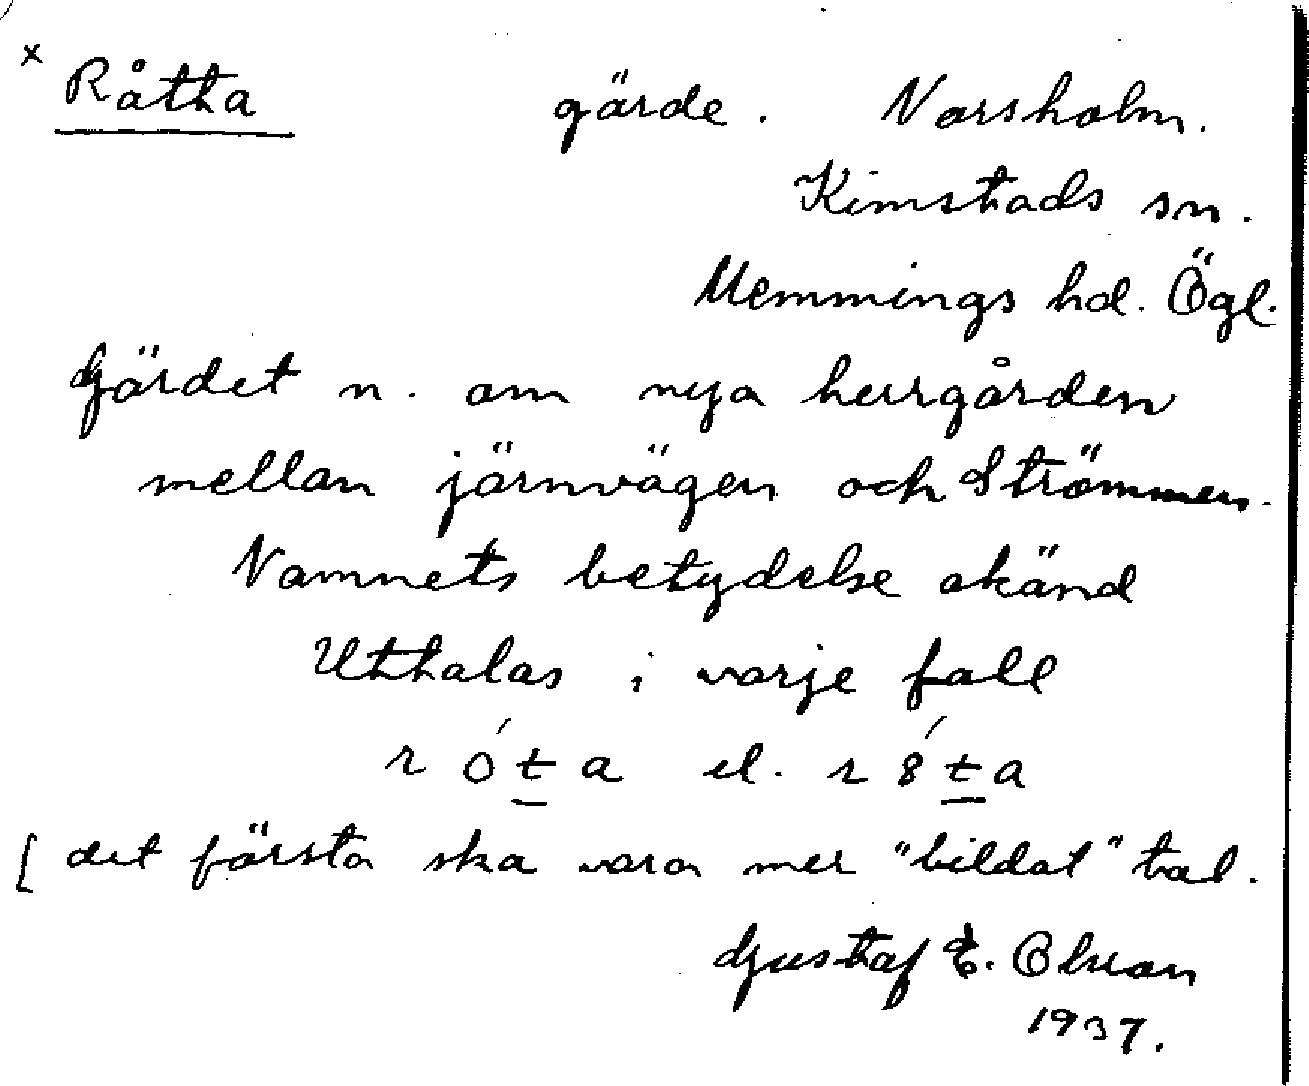 x Råtta gärde. Norsholm.
Kimstads sn.
Memmings hd. Ögl.
Gärdet n. om nya herrgården
mellan järnvägen och Strömmen.
Namnets betydelse okänd
Uttalas i varje fall
r ó t a el. r 8́ t a
[ det första ska vara mer "bildat" tal.
Gustaf E. Olsson
1937.